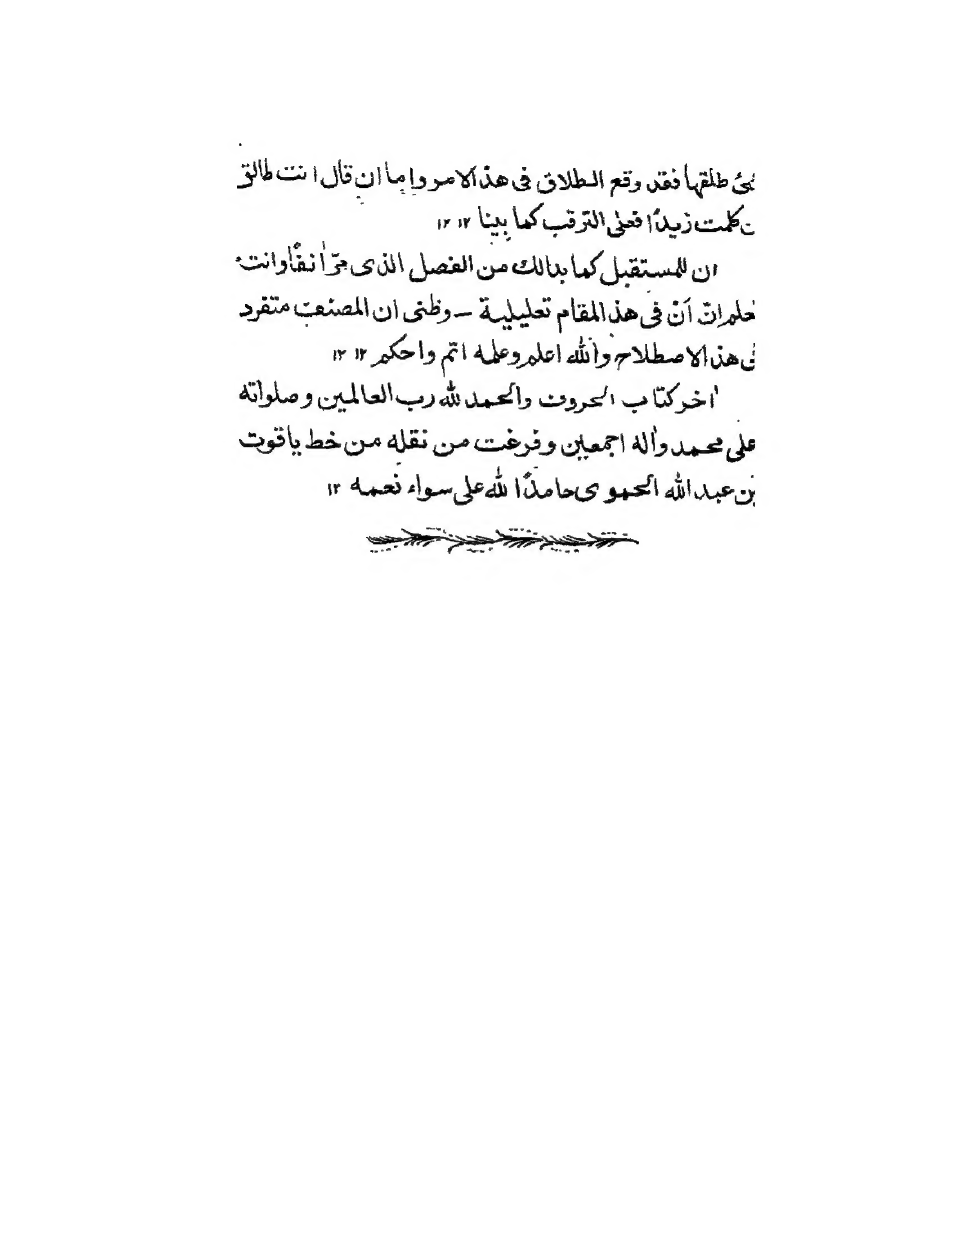 طلقها فقد وقع الطلاق فى هذالامر واما ان قال انت طالق
كلمت زيدًا فعلى الترقب كما بينا ١٢ ١٢
ان للمستقبل كما بدالك من الفصل الذى مرّ اٰنفًا وانت
اِنّ اَنْ فى هذالمقام تعليلية — وظنى ان المصنف متفرد
هذالاصطلاح واللّٰه اعلم وعلمه اتم واحكم ١٢ ١٢
اٰخر كتاب الحروف والحمد للّٰه رب العالمين وصلواته
على محمد واٰله اجمعين وفرغت من نقله من خط ياقوت
بن عبداللّٰه الحموى حامدًا للّٰه على سواء نعمه ١٢